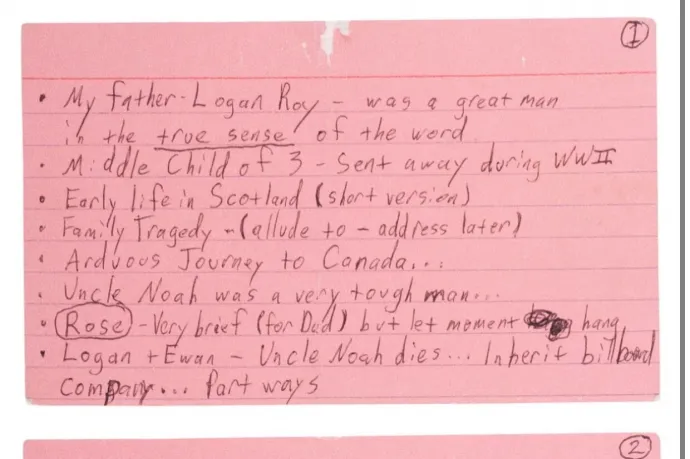 1
• My father - Logan Roy - was a great man
in the true sense of the word
• Middle Child of 3 - Sent away during WWII
• Early life in Scotland (short version)
• Family Tragedy - (allude to - address later)
• Arduous Journey to Canada...
• Uncle Noah was a very tough man...
• Rose - Very brief (for Dad) but let moment hang
• Logan + Ewan - Uncle Noah dies... Inherit billboard
Company... Part ways
2